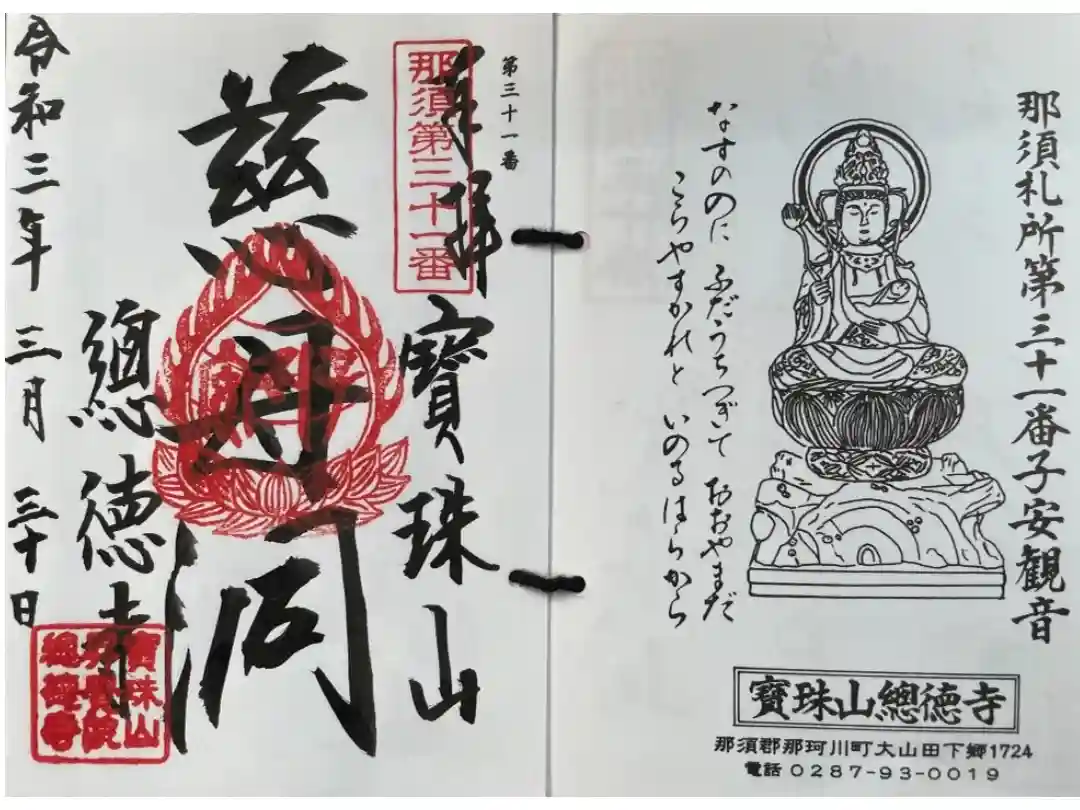 那須札所第三十一番子安観音
なすののに ふだうちつぎて おおやまだ
こらやすかれと いのるはらから
寶珠山總徳寺
那須郡那珂川町大山田下郷1724
電話 0287-93-0019
第三十一番
奉拝
那須第三十一番
寶珠山
慈母閣
總徳寺
令和三年 三月 三十日
寶珠山
總徳寺